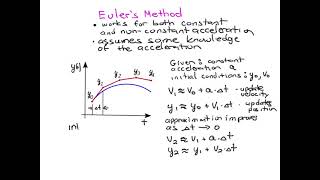 Euler's Method
• works for both constant
and non-constant acceleration
• assumes some knowledge
of the acceleration
Given: constant
acceleration a
initial conditions: y₀, v₀
V₁ ≈ V₀ + a·Δt - update velocity
y₁ ≈ y₀ + V₁·Δt - update position
approximation improves
as Δt → 0
V₂ ≈ V₁ + a·Δt
y₂ ≈ y₁ + V₂·Δt
y(t)
y₀
y₁
y₂
y₃
y₄
Δt
t